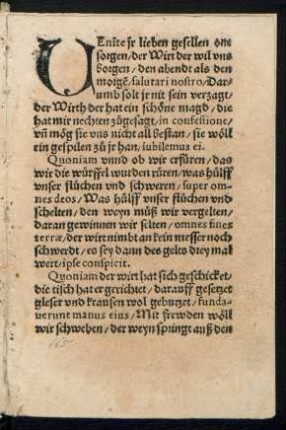 VEnite jr lieben gesellen one
sorgen/der Wirt der wil vns
borgen/den abendt als den
morgẽ, salutari nostro/Dar-
umb solt jr nit sein verzagt/
der Wirth der hat ein schöne magd/die
hat mir nechten zůgesagt/in confessione/
vñ mög sie vns nicht all bestan/sie wöll
ein gespilen zů jr han/iubilemus ei.
Quoniam vnnd ob wir erfüren/das
wir die würffel wurden rüren/was hülff
vnser flüchen vnd schweren/super om-
nes deos/Was hülff vnser flüchen vnd
schelten/den weyn můß wir vergelten/
daran gewinnen wir selten/omnes fines
terræ/der wirt nimbt an kein messer noch
schwerdt/es sey dann des gelts drey mal
wert/ipse conspicit.
Quoniam der wirt hat sich geschicket/
die tisch hat er gerichtet/darauff gesetzet
gleser vnd krausen wol gebutzet/funda-
uerunt manus eius/Mit frewden wöll
wir schweben/der weyn springt auß den